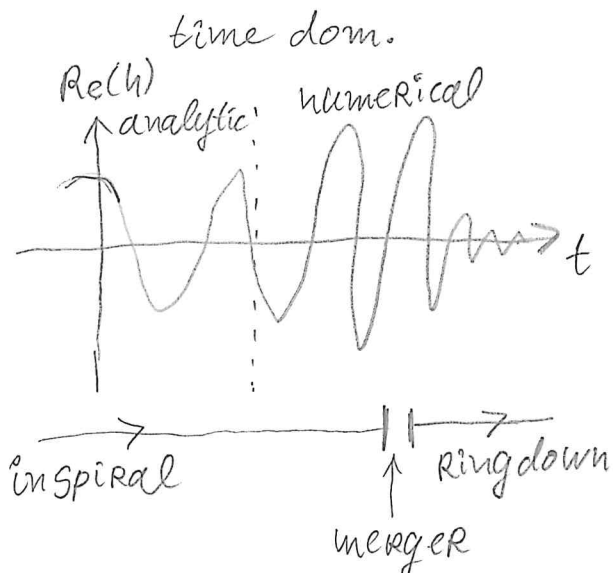 time dom.
Re(h)
analytic
numerical
t
inspiral
Ringdown
merger